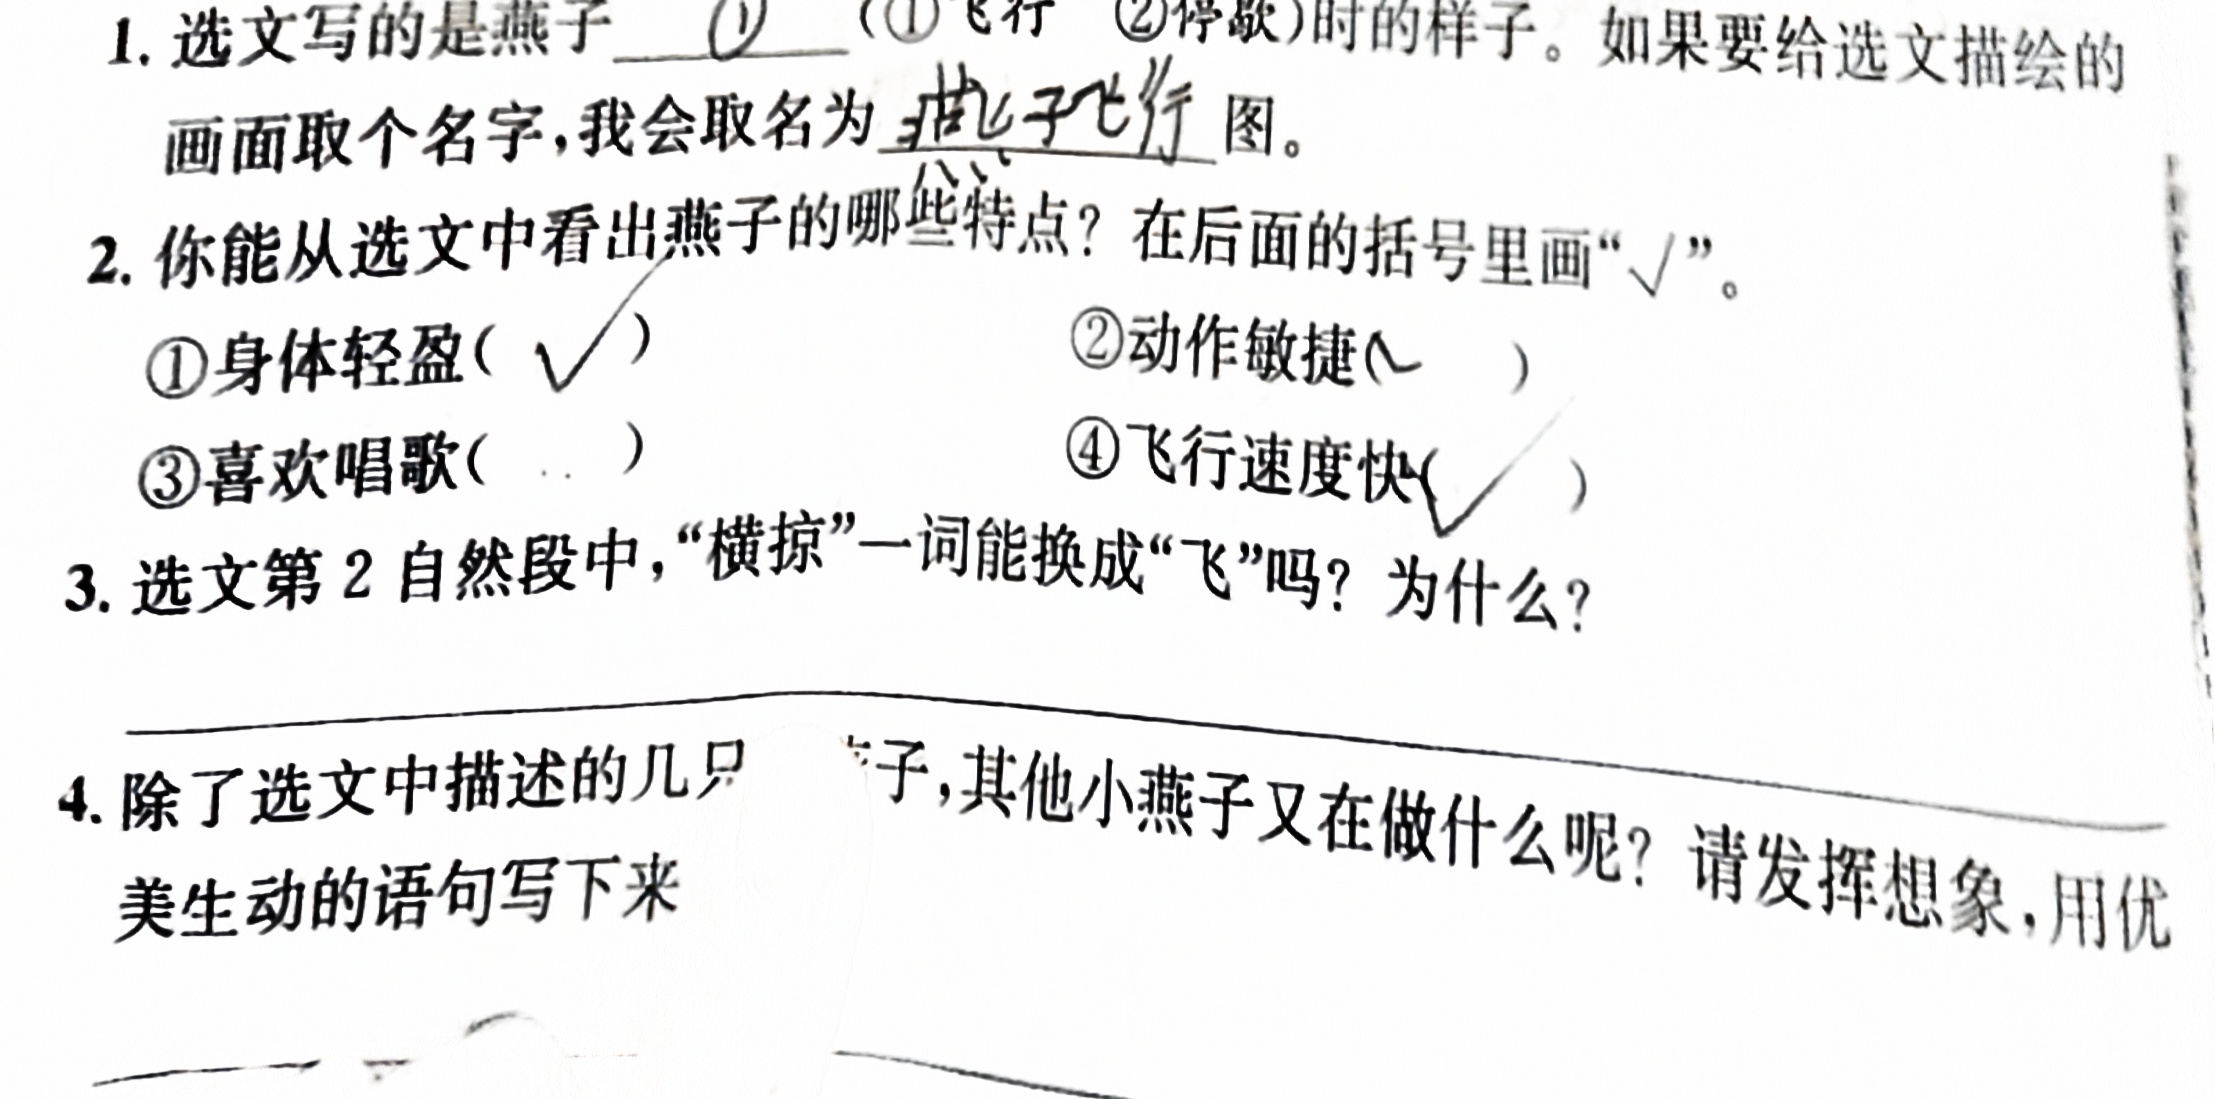 1. 选文写的是燕子①(①飞行 ②停歇)时的样子。如果要给选文描绘的
画面取个名字,我会取名为燕子飞行图。
2. 你能从选文中看出燕子的哪些特点？在后面的括号里画“√”。
①身体轻盈( √ ) ②动作敏捷(√ )
③喜欢唱歌( ) ④飞行速度快(√ )
3. 选文第 2 自然段中,“横掠”一词能换成“飞”吗？为什么？
4. 除了选文中描述的几只 子,其他小燕子又在做什么呢？请发挥想象,用优
美生动的语句写下来